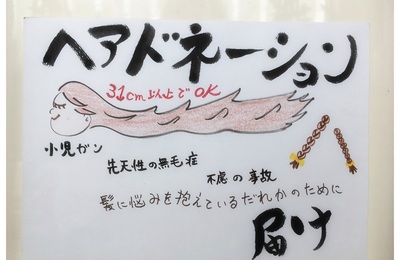 ヘアドネーション
31cm以上でOK
小児ガン
先天性の無毛症
不慮の事故
髪に悩みを抱えているだれかのために
届け